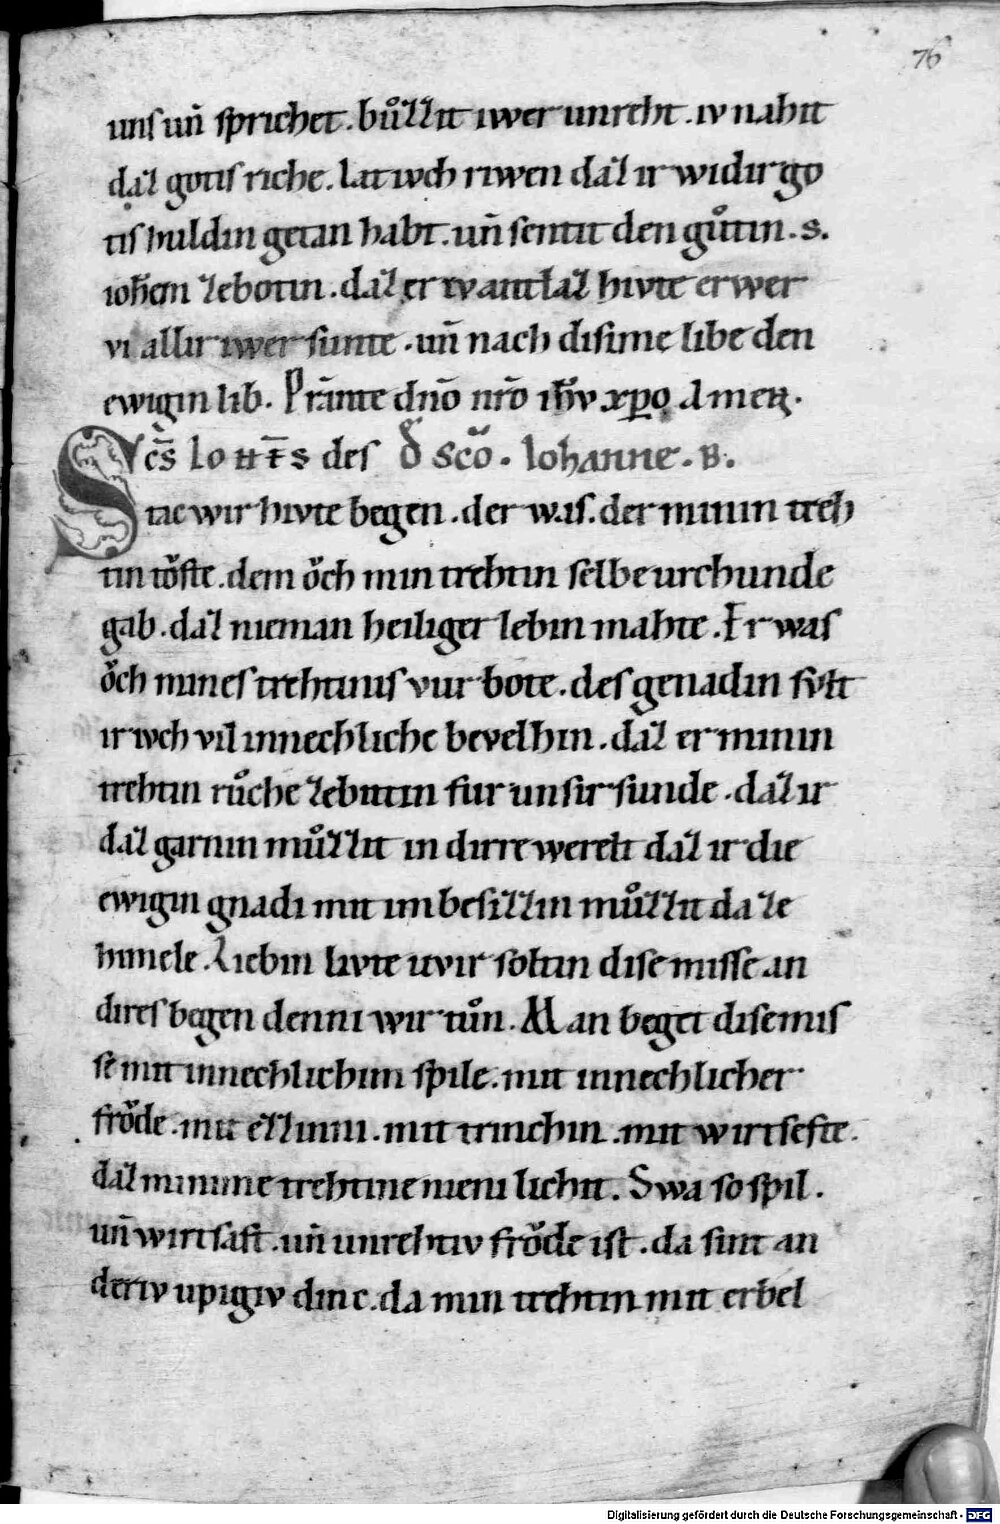 76
unſ uñ ſprichet. bůzzit iwer unreht. iv nahit
daz gotiſ riche. lat iwch riwen daz ir widir go
tiſ huldin getan habt. uñ ſentit den gůtin. s.
ioh̄em zebotin. daz er iv antlaz hivte erwer
vi allir iwer ſunte. uñ nach diſime libe den
ewigin lib. Pr̄ante dn̄o nr̄o ih̄v xp̄o Amen.
Sc̄s deſ sc̄o. Iohanne. B.
tac wir hivte begen. der waſ. der minin treh
tin tǒfte. dem ǒch min trehtin ſelbe urchunde
gab. daz nieman heiliger lebin mahte. Er waſ
ǒch mineſ trehtiniſ vur bote. deſ genadin ſvlt
ir iwch vil innechliche bevelhin. daz er minin
trehtin růche zebittin fur unſir ſunde. daz ir
daz garnin můzzit in dirre werelt daz ir die
ewigin gnadi mit im beſizzin můzzit da ze
himele. Liebin livte wir ſoltin diſe miſſe an
direſ begen denni wir tůn. Man beget diſe miſ
ſe mit innechlichim ſpile. mit innechlicher
frǒde. mit ezzinni. mit trinchin. mit wirtſefte.
daz minime trehtine nieni lichit. Swa ſo ſpil.
uñ wirtſaft. uñ unrehtiv frǒde iſt. da ſint an
deriv upigiv dinc. da min trehtin mit erbel
Digitalisierung gefördert durch die Deutsche Forschungsgemeinschaft - DFG